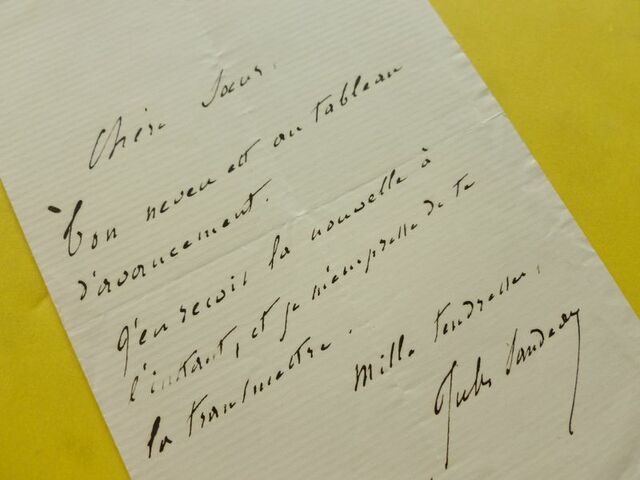 Chère Soeur,
Ton neveu est au tableau
d'avancement.
J'en reçois la nouvelle à
l'instant, et je m'empresse de te
la transmettre.
Mille tendresses,
Jules Sandeau